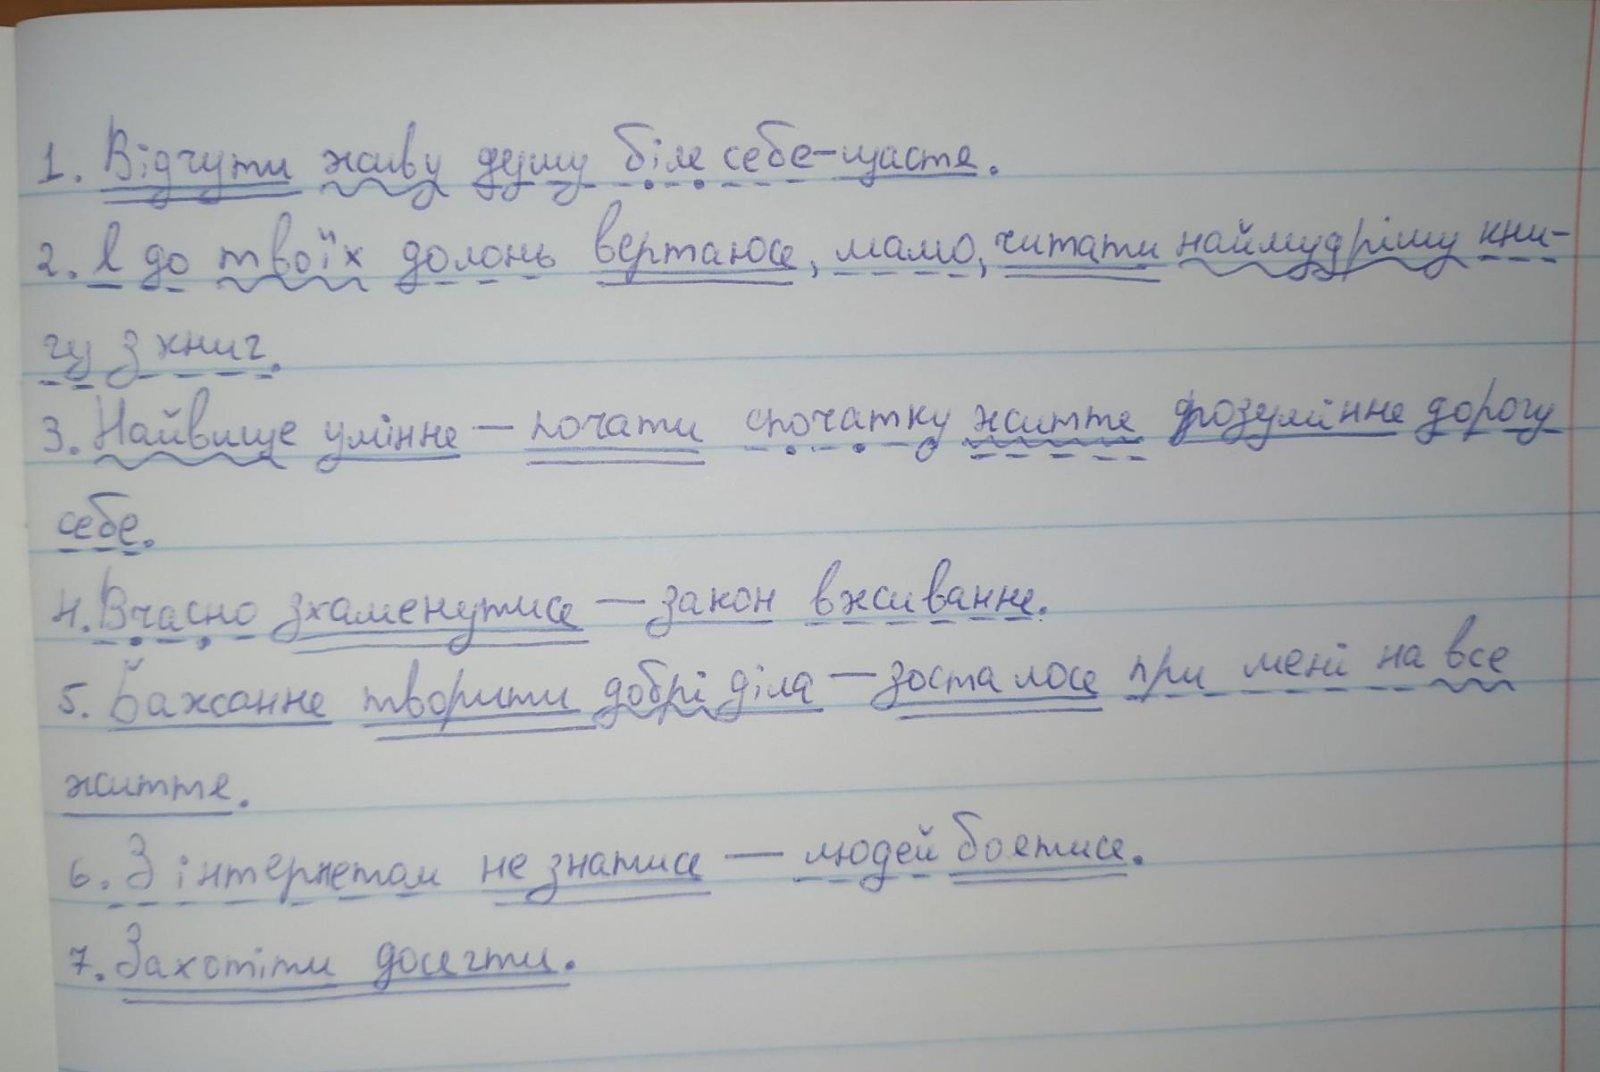 1. Відчути живу душу біля себе-щастя.
2. Я до твоїх долонь вертаюся, мамо, читати наймудрішу кни-
гу з книг.
3. Найвище уміння — почати спочатку життя розуміння дорогу
себе.
4. Вчасно схаменутися — закон вживання.
5. Бажання творити добрі діла — зосталося при мені на все
життя.
6. З інтернетом не знатися — людей боятися.
7. Захотіти досягти.